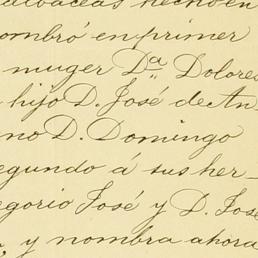 albaceas hecho en
ombró en primer
muger Da Dolores
hijo D. José de An
no D. Domingo
egundo á sus her-
egorio José y D. José
y nombra ahora